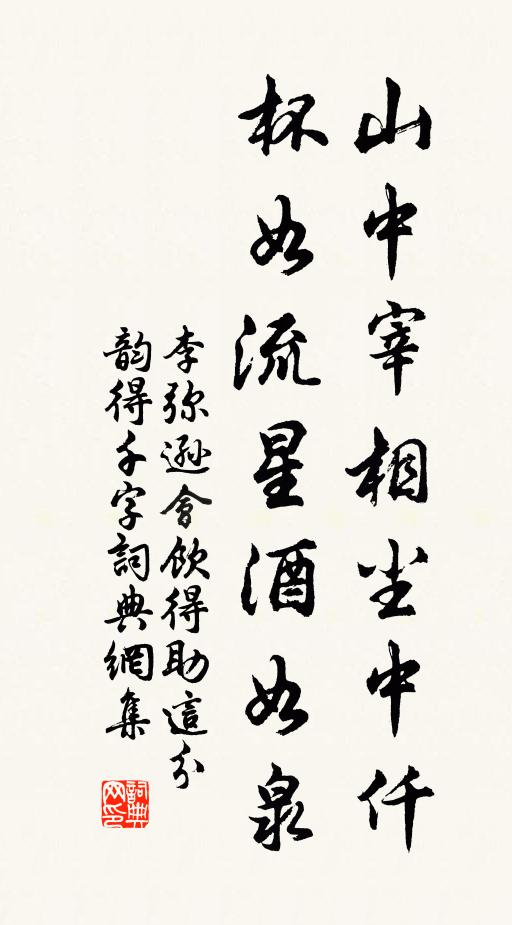 山中宰相尘中仟
杯如流星酒如泉
李弥逊會飲得助這分
韵得千字詞典網集
詞典网印